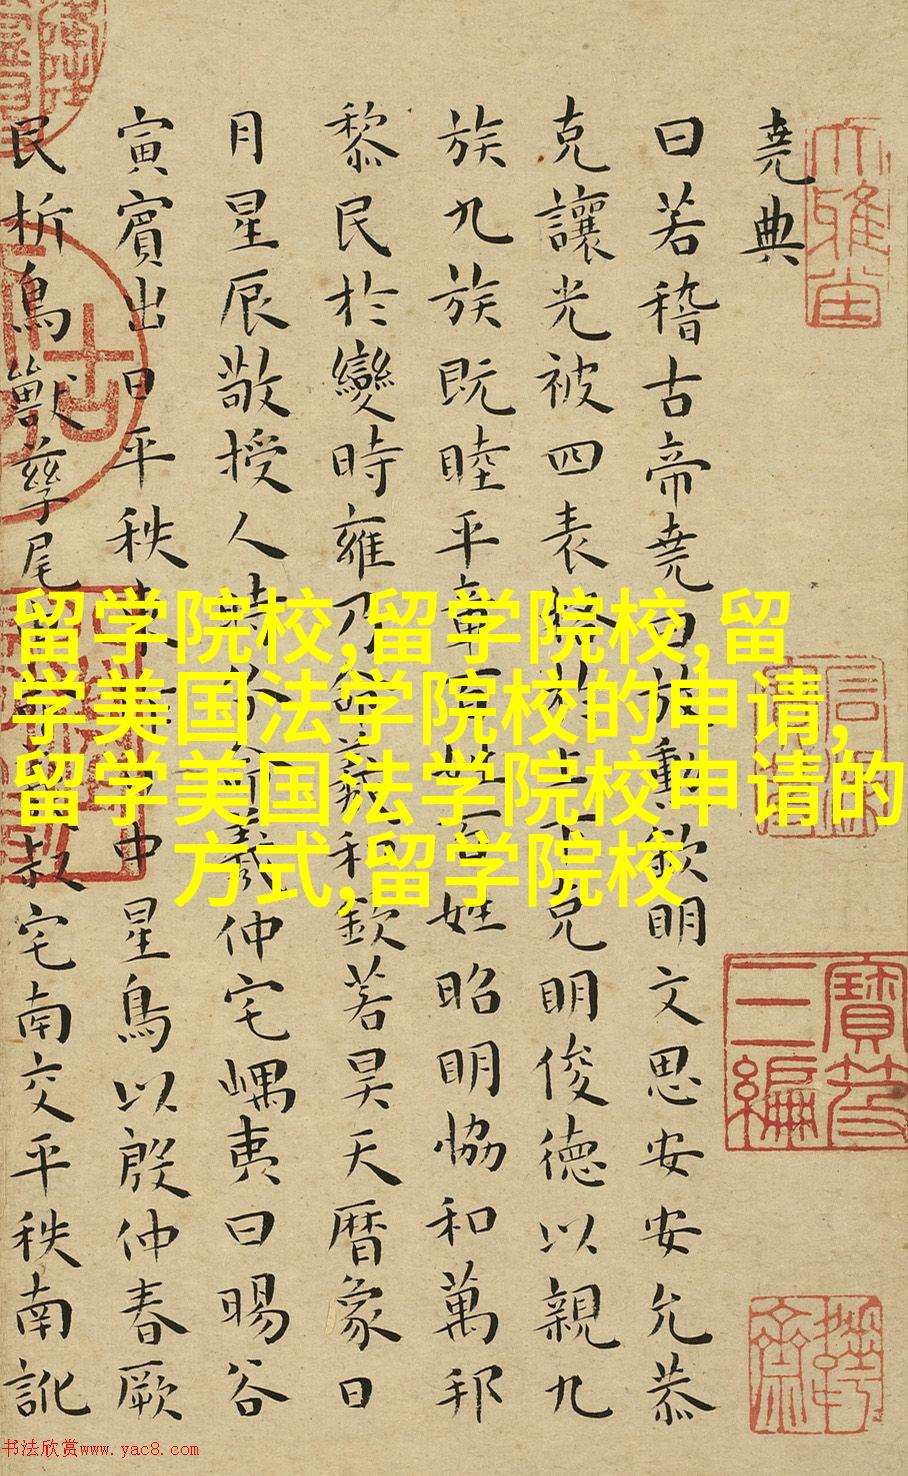 堯典
曰若稽古帝堯曰放勳欽明文思安安允恭
克讓光被四表格於上下克明俊德以親九
族九族既睦平章百姓百姓昭明恊和萬邦
黎民於變時雍乃命羲和欽若昊天曆象日
月星辰敬授人時分命羲仲宅嵎夷曰暘谷
寅賓出日平秩東作日中星鳥以殷仲春厥
民析鳥獸孳尾申命羲叔宅南交平秩南訛
留学院校,留学院校,留
学美国法学院校的申请,
留学美国法学院校申请的
方式,留学院校
寶笈
三編
书法欣赏www.yac8.com